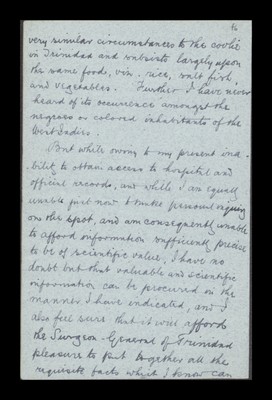 16
very similar circumstances to the coolie
in Trinidad and subsists largely upon
the same food, viz. rice, salt fish,
and vegetables. Further I have never
heard of its occurrence amongst the
negroes or colored inhabitants of the
West Indies.
But while owing to my present ina-
bility to obtain access to hospital and
official records, and while I am equally
unable just now to make personal inquiry
on the spot, and am consequently unable
to afford information sufficiently precise
to be of scientific value, I have no
doubt but that valuable and scientific
information can be procured in the
manner I have indicated, and I
also feel sure that it will afford
the Surgeon-General of Trinidad
pleasure to put together all the
requisite facts which I know can